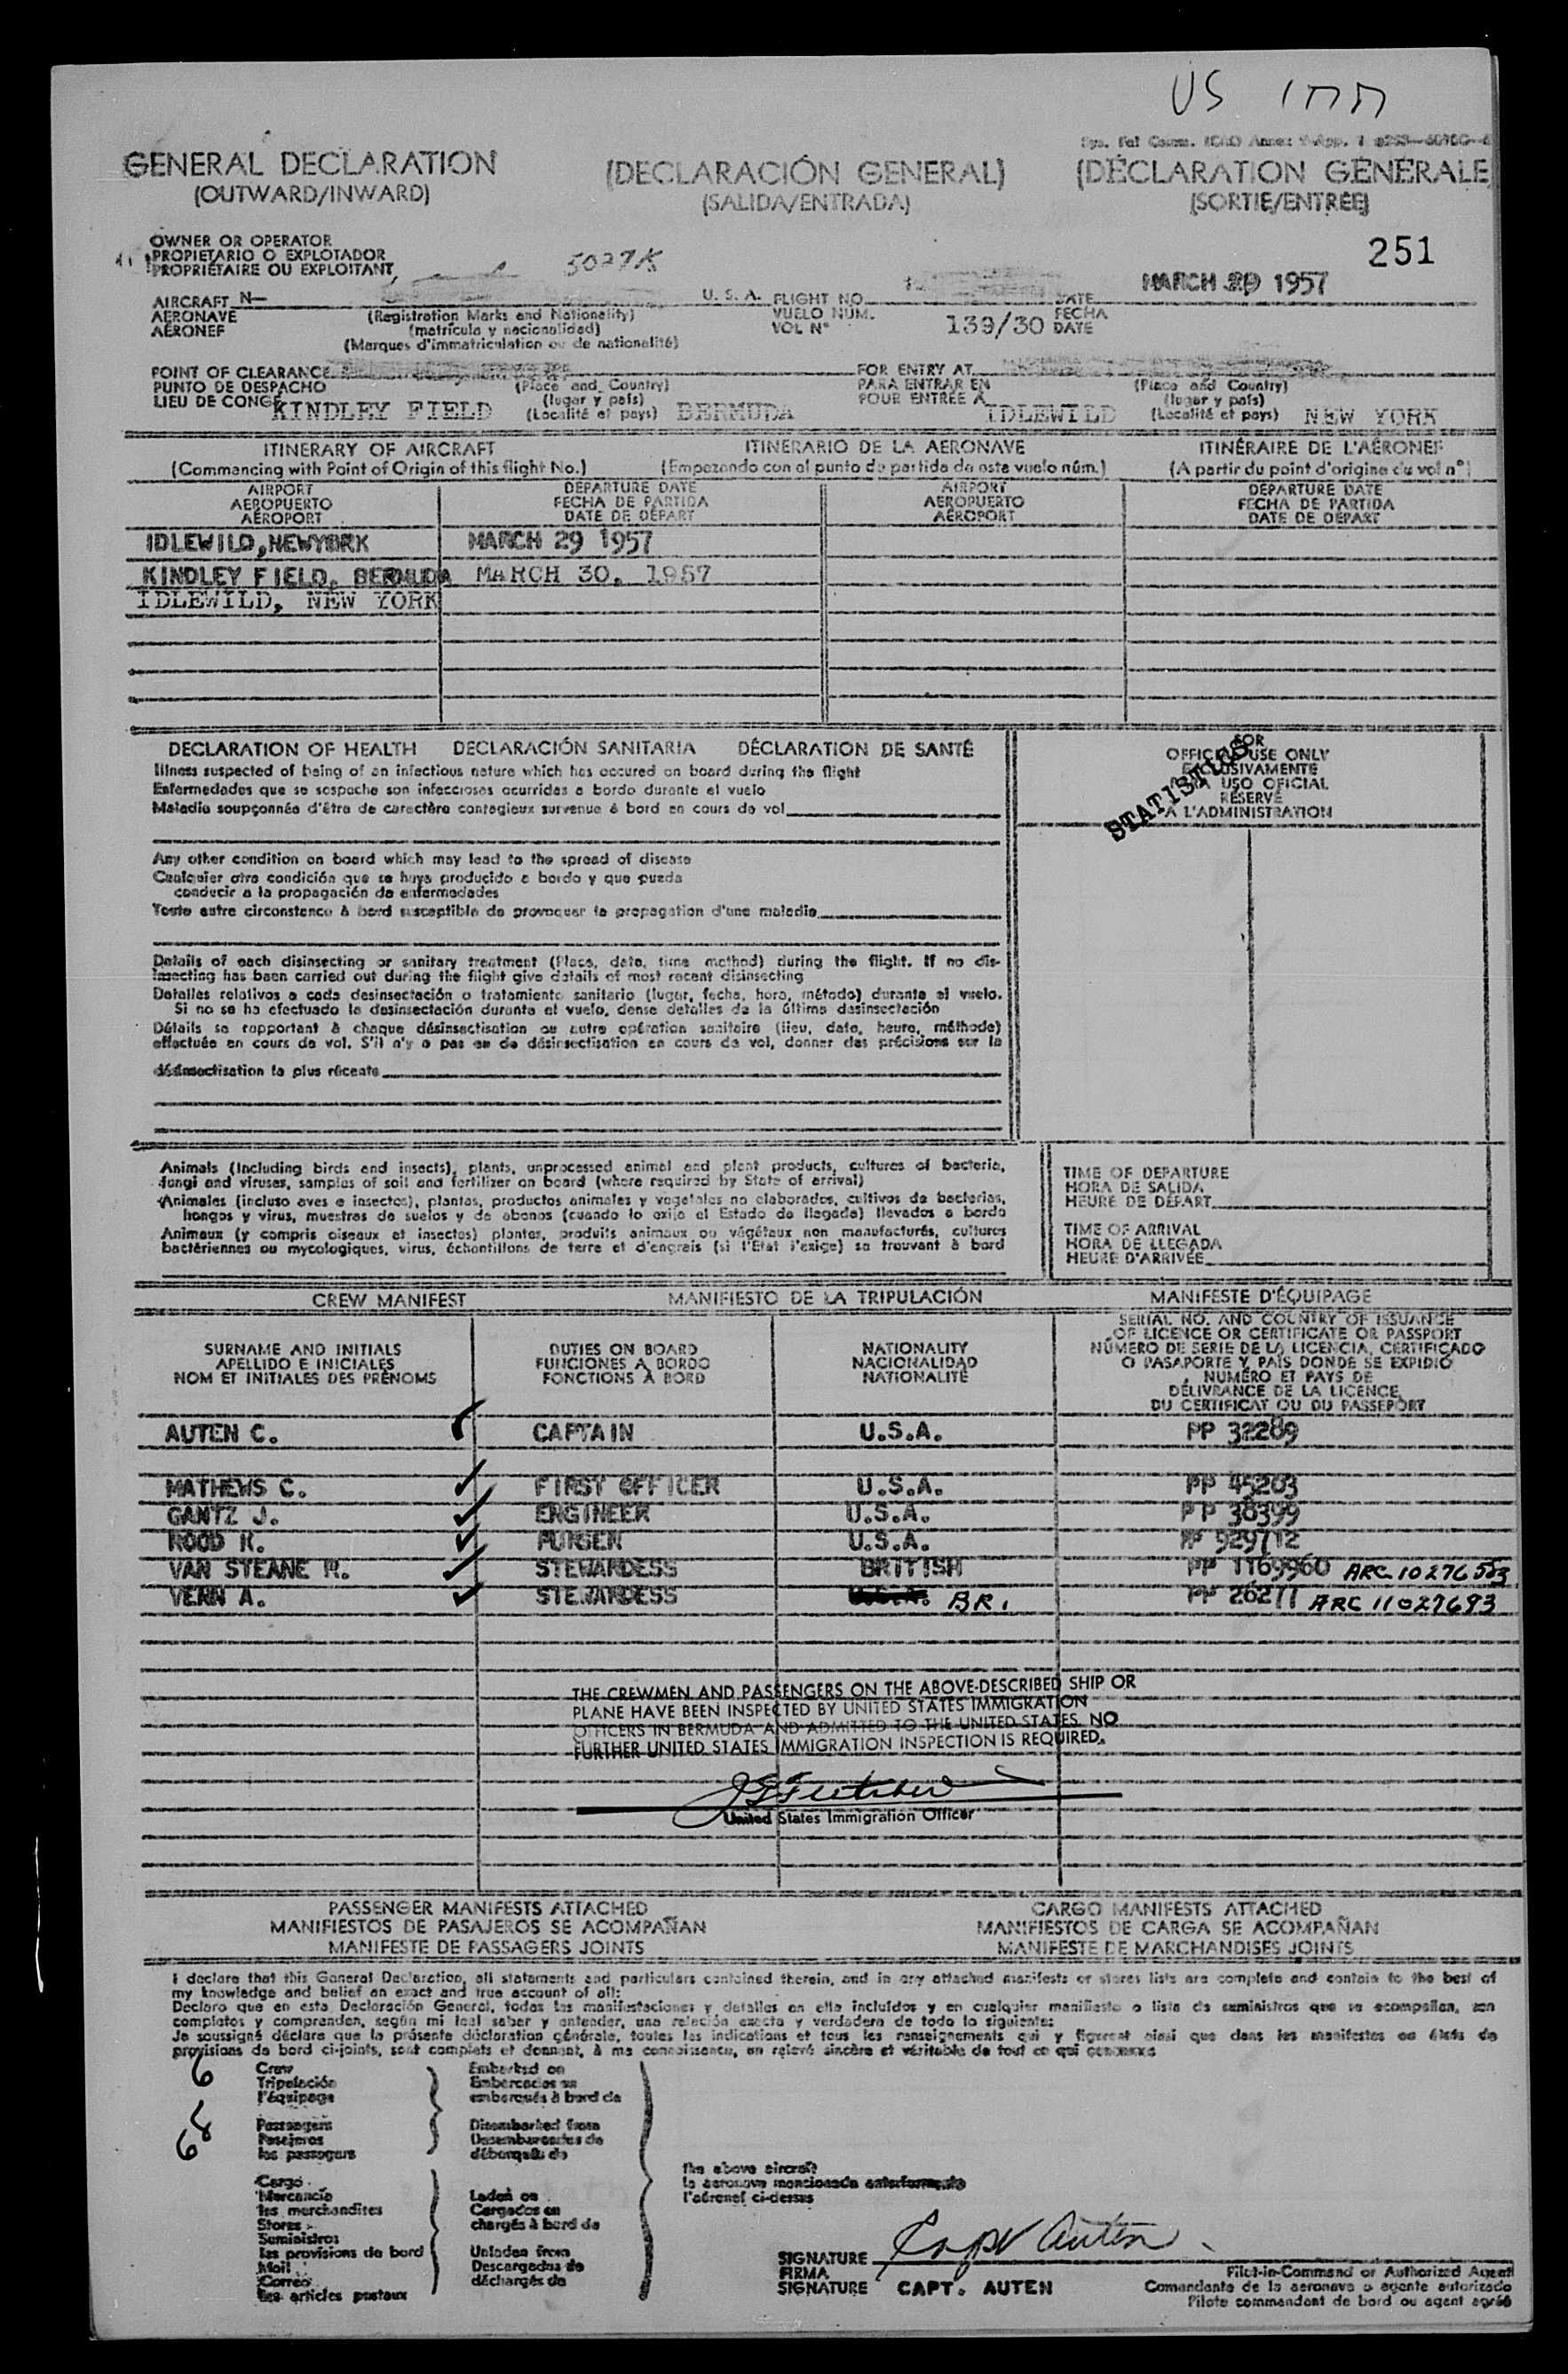 US IMM
GENERAL DECLARATION (DECLARACIÓN GENERAL) (DÉCLARATION GÉNÉRALE)
(OUTWARD/INWARD) (SALIDA/ENTRADA) (SORTIE/ENTRÉE)
OWNER OR OPERATOR
PROPIETARIO O EXPLOTADOR
PROPRIÉTAIRE OU EXPLOITANT
5027K
251
MARCH 1957
AIRCRAFT N— U. S. A. FLIGHT NO. DATE
AERONAVE (Registration Marks and Nationality) VUELO NÚM. 139/30 FECHA
AÉRONEF (matrícula y nacionalidad) VOL Nº DATE
(Marques d'immatriculation ou de nationalité)
POINT OF CLEARANCE FOR ENTRY AT
PUNTO DE DESPACHO (Place and Country) PARA ENTRAR EN (Place and Country)
LIEU DE CONGÉ (lugar y país) POUR ENTRÉE À (lugar y país)
KINDLEY FIELD (Localité et pays) BERMUDA IDLEWILD (Localité et pays) NEW YORK
ITINERARY OF AIRCRAFT ITINERARIO DE LA AERONAVE ITINÉRAIRE DE L'AÉRONEF
(Commencing with Point of Origin of this flight No.) (Empezando con el punto de partida de este vuelo núm.) (A partir du point d'origine du vol nº)
AIRPORT DEPARTURE DATE AIRPORT DEPARTURE DATE
AEROPUERTO FECHA DE PARTIDA AEROPUERTO FECHA DE PARTIDA
AÉROPORT DATE DE DÉPART AÉROPORT DATE DE DÉPART
IDLEWILD, NEWYORK MARCH 29 1957
KINDLEY FIELD, BERMUDA MARCH 30, 1957
IDLEWILD, NEW YORK
DECLARATION OF HEALTH DECLARACIÓN SANITARIA DÉCLARATION DE SANTÉ
Illness suspected of being of an infectious nature which has occured on board during the flight
Enfermedades que se sospeche son infecciosas ocurridas a bordo durante el vuelo
Maladie soupçonnée d'être de caractère contagieux survenue à bord en cours de vol
FOR
OFFICIAL USE ONLY
EXCLUSIVAMENTE
PARA USO OFICIAL
RÉSERVÉ
À L'ADMINISTRATION
Any other condition on board which may lead to the spread of disease
Cualquier otra condición que se haya producido a bordo y que pueda
conducir a la propagación de enfermedades
Toute autre circonstance à bord susceptible de provoquer la propagation d'une maladie
Details of each disinsecting or sanitary treatment (Place, date, time method) during the flight. If no dis-
insecting has been carried out during the flight give details of most recent disinsecting
Detalles relativos a cada desinsectación o tratamiento sanitario (lugar, fecha, hora, método) durante el vuelo.
Si no se ha efectuado la desinsectación durante el vuelo, dense detalles de la última desinsectación
Détails se rapportant à chaque désinsectisation ou autre opération sanitaire (lieu, date, heure, méthode)
effectuée en cours de vol. S'il n'y a pas eu de désinsectisation en cours de vol, donner des précisions sur la
désinsectisation la plus récente
Animals (Including birds and insects), plants, unprocessed animal and plant products, cultures of bacteria,
fungi and viruses, samples of soil and fertilizer on board (where required by State of arrival)
Animales (incluso aves e insectos), plantas, productos animales y vegetales no elaborados, cultivos de bacterias,
hongos y virus, muestras de suelos y de abonos (cuando lo exija el Estado de llegada) llevados a bordo
Animaux (y compris oiseaux et insectes) plantes, produits animaux ou végétaux non manufacturés, cultures
bactériennes ou mycologiques, virus, échantillons de terre et d'engrais (si l'Etat l'exige) se trouvant à bord
TIME OF DEPARTURE
HORA DE SALIDA
HEURE DE DÉPART
TIME OF ARRIVAL
HORA DE LLEGADA
HEURE D'ARRIVÉE
CREW MANIFEST MANIFIESTO DE LA TRIPULACIÓN MANIFESTE D'ÉQUIPAGE
SURNAME AND INITIALS
APELLIDO E INICIALES
NOM ET INITIALES DES PRÉNOMS
DUTIES ON BOARD
FUNCIONES A BORDO
FONCTIONS À BORD
NATIONALITY
NACIONALIDAD
NATIONALITÉ
SERIAL NO. AND COUNTRY OF ISSUANCE
OF LICENCE OR CERTIFICATE OR PASSPORT
NÚMERO DE SERIE DE LA LICENCIA, CERTIFICADO
O PASAPORTE Y PAÍS DONDE SE EXPIDIÓ
NUMÉRO ET PAYS DE
DÉLIVRANCE DE LA LICENCE
DU CERTIFICAT OU DU PASSEPORT
AUTEN C. CAPTAIN U.S.A. PP 32289
MATHEWS C. FIRST OFFICER U.S.A. PP 45203
GANTZ J. ENGINEER U.S.A. PP 38399
HOOD K. PURSER U.S.A. PP 529712
VAN STEANE R. STEWARDESS BRITISH PP 1169960 ARC 10276553
VENN A. STEWARDESS BRI. PP 26211 ARC 11027693
THE CREWMEN AND PASSENGERS ON THE ABOVE-DESCRIBED SHIP OR
PLANE HAVE BEEN INSPECTED BY UNITED STATES IMMIGRATION
OFFICERS IN BERMUDA AND ADMITTED TO THE UNITED STATES. NO
FURTHER UNITED STATES IMMIGRATION INSPECTION IS REQUIRED.
United States Immigration Officer
PASSENGER MANIFESTS ATTACHED CARGO MANIFESTS ATTACHED
MANIFIESTOS DE PASAJEROS SE ACOMPAÑAN MANIFIESTOS DE CARGA SE ACOMPAÑAN
MANIFESTE DE PASSAGERS JOINTS MANIFESTE DE MARCHANDISES JOINTS
I declare that this General Declaration, all statements and particulars contained therein, and in any attached manifests or stores lists are complete and contain to the best of
my knowledge and belief an exact and true account of all:
Declaro que en esta Declaración General, todas las manifestaciones y detalles en ella incluídos y en cualquier manifiesto o lista de suministros que se acompañan, son
completos y comprenden, según mi leal saber y entender, una relación exacta y verdadera de todo lo siguiente:
Je soussigné déclare que la présente déclaration générale, toutes les indications et tous les renseignements qui y figurent ainsi que dans les manifestes ou états de
provisions de bord ci-joints, sont complets et donnent, à ma connaissance, un relevé sincère et véritable de tout ce qui
6 Crew Embarked on
Tripulación Embarcados en
l'équipage embarqués à bord de
Passengers Disembarked from
Pasajeros Desembarcados de
les passagers débarqués de
the above aircraft
la aeronave mencionada anteriormente
l'aéronef ci-dessus
Cargo
Mercancía Laden on
les marchandises Cargados en
Stores chargés à bord de
Suministros
les provisions de bord Unladen from
Mail Descargados de
Correo déchargés de
les articles postaux
SIGNATURE Capt Auten
FIRMA
SIGNATURE CAPT. AUTEN
Pilot-in-Command or Authorized Agent
Comandante de la aeronave o agente autorizado
Pilote commandant de bord ou agent agréé